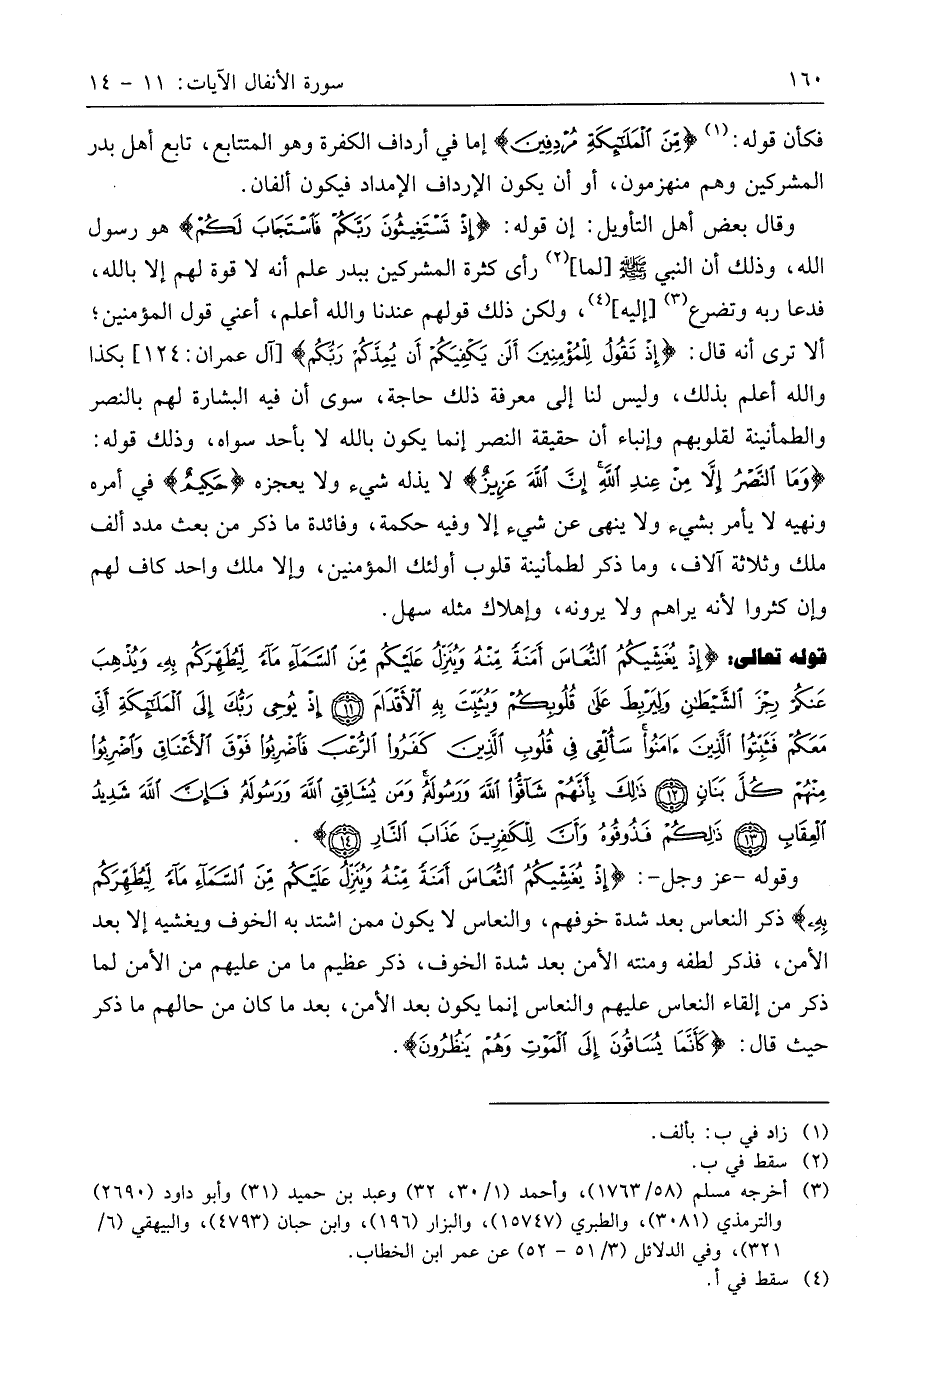 ١٦٠ سورة الأنفال الآيات: ١١ - ١٤
فكأن قوله:(١) ﴿مِّنَ ٱلْمَلَٰٓئِكَةِ مُرْدِفِينَ﴾ إما في أرداف الكفرة وهو المتتابع، تابع أهل بدر
المشركين وهم منهزمون، أو أن يكون الإرداف الإمداد فيكون ألفان.
وقال بعض أهل التأويل: إن قوله: ﴿إِذْ تَسْتَغِيثُونَ رَبَّكُمْ فَٱسْتَجَابَ لَكُمْ﴾ هو رسول
الله، وذلك أن النبي ﷺ [لما](٢) رأى كثرة المشركين ببدر علم أنه لا قوة لهم إلا بالله،
فدعا ربه وتضرع(٣) [إليه](٤)، ولكن ذلك قولهم عندنا والله أعلم، أعني قول المؤمنين؛
ألا ترى أنه قال: ﴿إِذْ تَقُولُ لِلْمُؤْمِنِينَ أَلَن يَكْفِيَكُمْ أَن يُمِدَّكُمْ رَبُّكُم﴾ [آل عمران: ١٢٤] بكذا
والله أعلم بذلك، وليس لنا إلى معرفة ذلك حاجة، سوى أن فيه البشارة لهم بالنصر
والطمأنينة لقلوبهم وإنباء أن حقيقة النصر إنما يكون بالله لا بأحد سواه، وذلك قوله:
﴿وَمَا ٱلنَّصْرُ إِلَّا مِنْ عِندِ ٱللَّهِۚ إِنَّ ٱللَّهَ عَزِيزٌ﴾ لا يذله شيء ولا يعجزه ﴿حَكِيمٌ﴾ في أمره
ونهيه لا يأمر بشيء ولا ينهى عن شيء إلا وفيه حكمة، وفائدة ما ذكر من بعث مدد ألف
ملك وثلاثة آلاف، وما ذكر لطمأنينة قلوب أولئك المؤمنين، وإلا ملك واحد كاف لهم
وإن كثروا لأنه يراهم ولا يرونه، وإهلاك مثله سهل.
قوله تعالى: ﴿إِذْ يُغَشِّيكُمُ ٱلنُّعَاسَ أَمَنَةً مِّنْهُ وَيُنَزِّلُ عَلَيْكُم مِّنَ ٱلسَّمَآءِ مَآءً لِّيُطَهِّرَكُم بِهِۦ وَيُذْهِبَ
عَنكُمْ رِجْزَ ٱلشَّيْطَٰنِ وَلِيَرْبِطَ عَلَىٰ قُلُوبِكُمْ وَيُثَبِّتَ بِهِ ٱلْأَقْدَامَ ١١ إِذْ يُوحِى رَبُّكَ إِلَى ٱلْمَلَٰٓئِكَةِ أَنِّى
مَعَكُمْ فَثَبِّتُوا۟ ٱلَّذِينَ ءَامَنُوا۟ۚ سَأُلْقِى فِى قُلُوبِ ٱلَّذِينَ كَفَرُوا۟ ٱلرُّعْبَ فَٱضْرِبُوا۟ فَوْقَ ٱلْأَعْنَاقِ وَٱضْرِبُوا۟
مِنْهُمْ كُلَّ بَنَانٍ ١٢ ذَٰلِكَ بِأَنَّهُمْ شَآقُّوا۟ ٱللَّهَ وَرَسُولَهُۥۚ وَمَن يُشَاقِقِ ٱللَّهَ وَرَسُولَهُۥ فَإِنَّ ٱللَّهَ شَدِيدُ
ٱلْعِقَابِ ١٣ ذَٰلِكُمْ فَذُوقُوهُ وَأَنَّ لِلْكَٰفِرِينَ عَذَابَ ٱلنَّارِ ١٤﴾.
وقوله -عز وجل-: ﴿إِذْ يُغَشِّيكُمُ ٱلنُّعَاسَ أَمَنَةً مِّنْهُ وَيُنَزِّلُ عَلَيْكُم مِّنَ ٱلسَّمَآءِ مَآءً لِّيُطَهِّرَكُم
بِهِۦ﴾ ذكر النعاس بعد شدة خوفهم، والنعاس لا يكون ممن اشتد به الخوف ويغشيه إلا بعد
الأمن، فذكر لطفه ومنته الأمن بعد شدة الخوف، ذكر عظيم ما من عليهم من الأمن لما
ذكر من إلقاء النعاس عليهم والنعاس إنما يكون بعد الأمن، بعد ما كان من حالهم ما ذكر
حيث قال: ﴿كَأَنَّمَا يُسَاقُونَ إِلَى ٱلْمَوْتِ وَهُمْ يَنظُرُونَ﴾.
(١) زاد في ب: بألف.
(٢) سقط في ب.
(٣) أخرجه مسلم (١٧٦٣/٥٨)، وأحمد (٣٠/١، ٣٢) وعبد بن حميد (٣١) وأبو داود (٢٦٩٠)
والترمذي (٣٠٨١)، والطبري (١٥٧٤٧)، والبزار (١٩٦)، وابن حبان (٤٧٩٣)، والبيهقي (٦/
٣٢١)، وفي الدلائل (٥١/٣ - ٥٢) عن عمر ابن الخطاب.
(٤) سقط في أ.